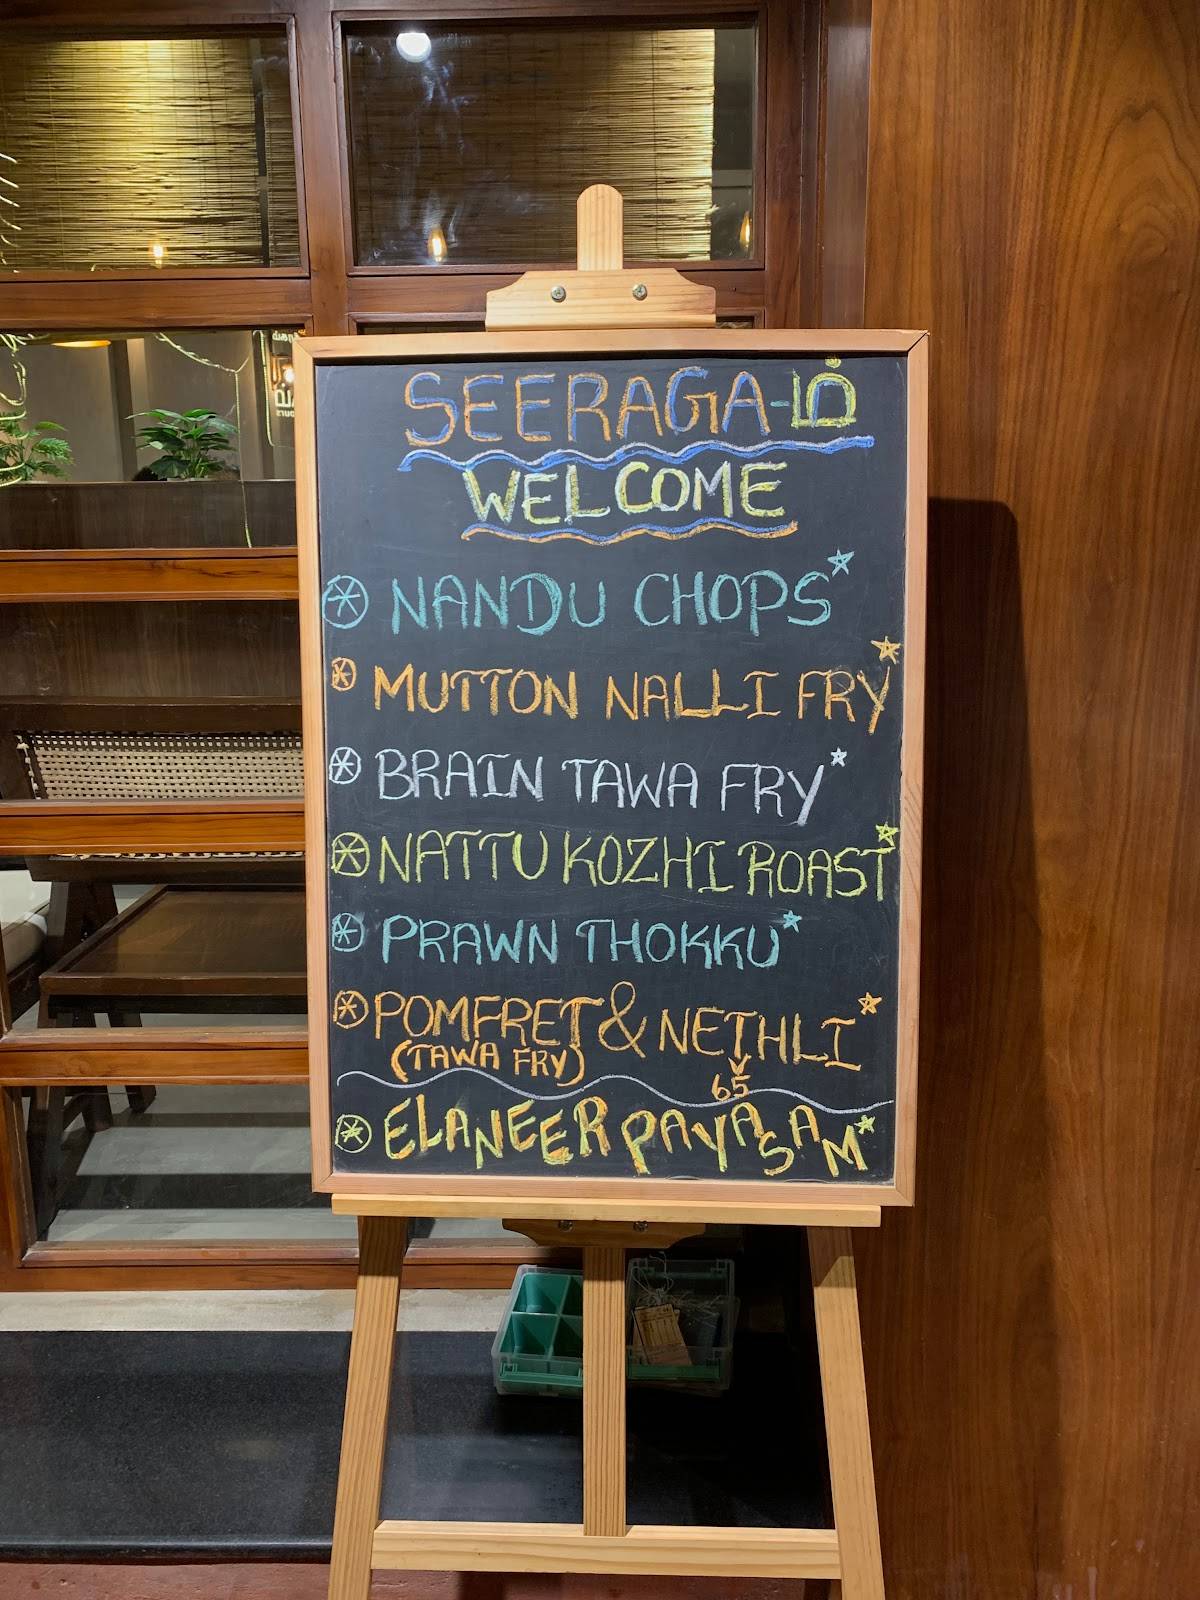 SEERAGA-ம்
WELCOME
NANDU CHOPS
MUTTON NALLI FRY
BRAIN TAWA FRY
NATTU KOZHI ROAST
PRAWN THOKKU
POMFRET & NETHLI
(TAWA FRY) 65
ELANEER PAYASAM